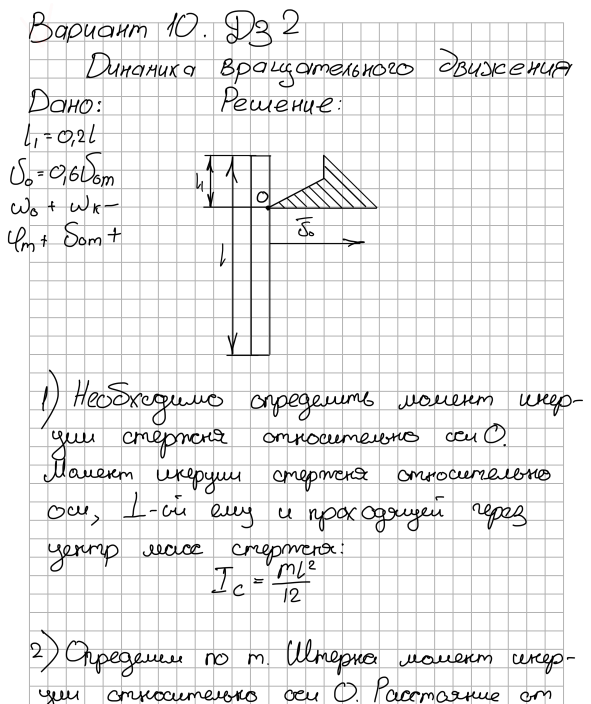 Вариант 10. Дз 2
Динамика вращательного движения
Дано: Решение:
l₁ = 0,2l
υ₀ = 0,6υ₀m
ω₀ + ωк −
φm + υ₀m +
h
O
υ̅₀
l
1) Необходимо определить момент инер-
ции стержня относительно оси O.
Момент инерции стержня относительно
оси, ⊥-ой ему и проходящей через
центр масс стержня:
I_C = ml²/12
2) Определим по т. Штерна момент инер-
ции относительно оси O. Расстояние от